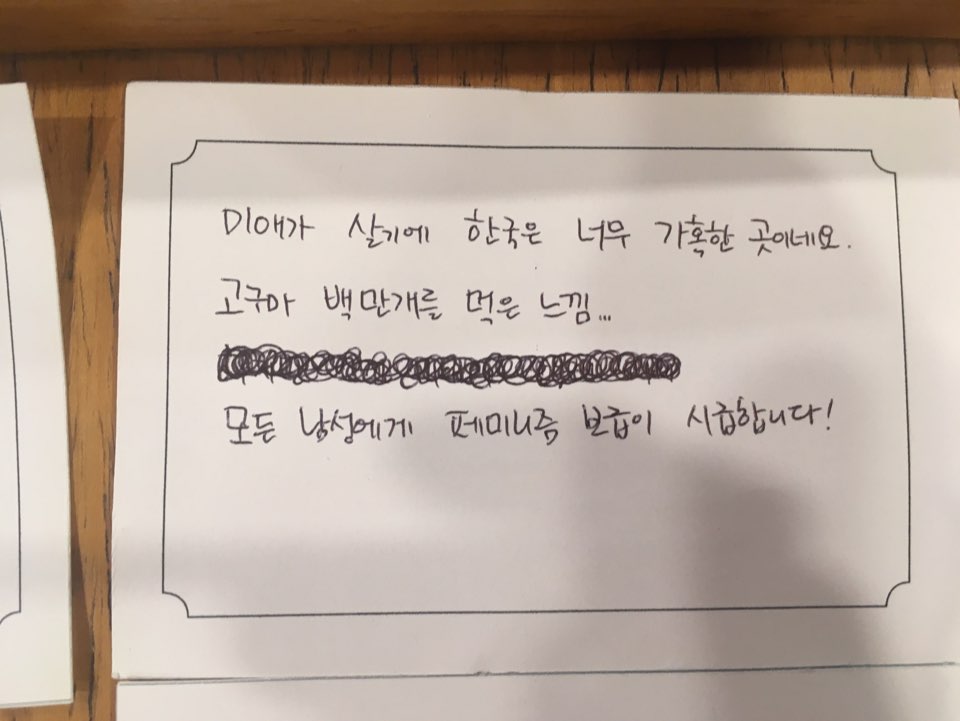 미애가 살기에 한국은 너무 가혹한 곳이네요.
고구마 백만개를 먹은 느낌...
모든 남성에게 페미니즘 보급이 시급합니다!